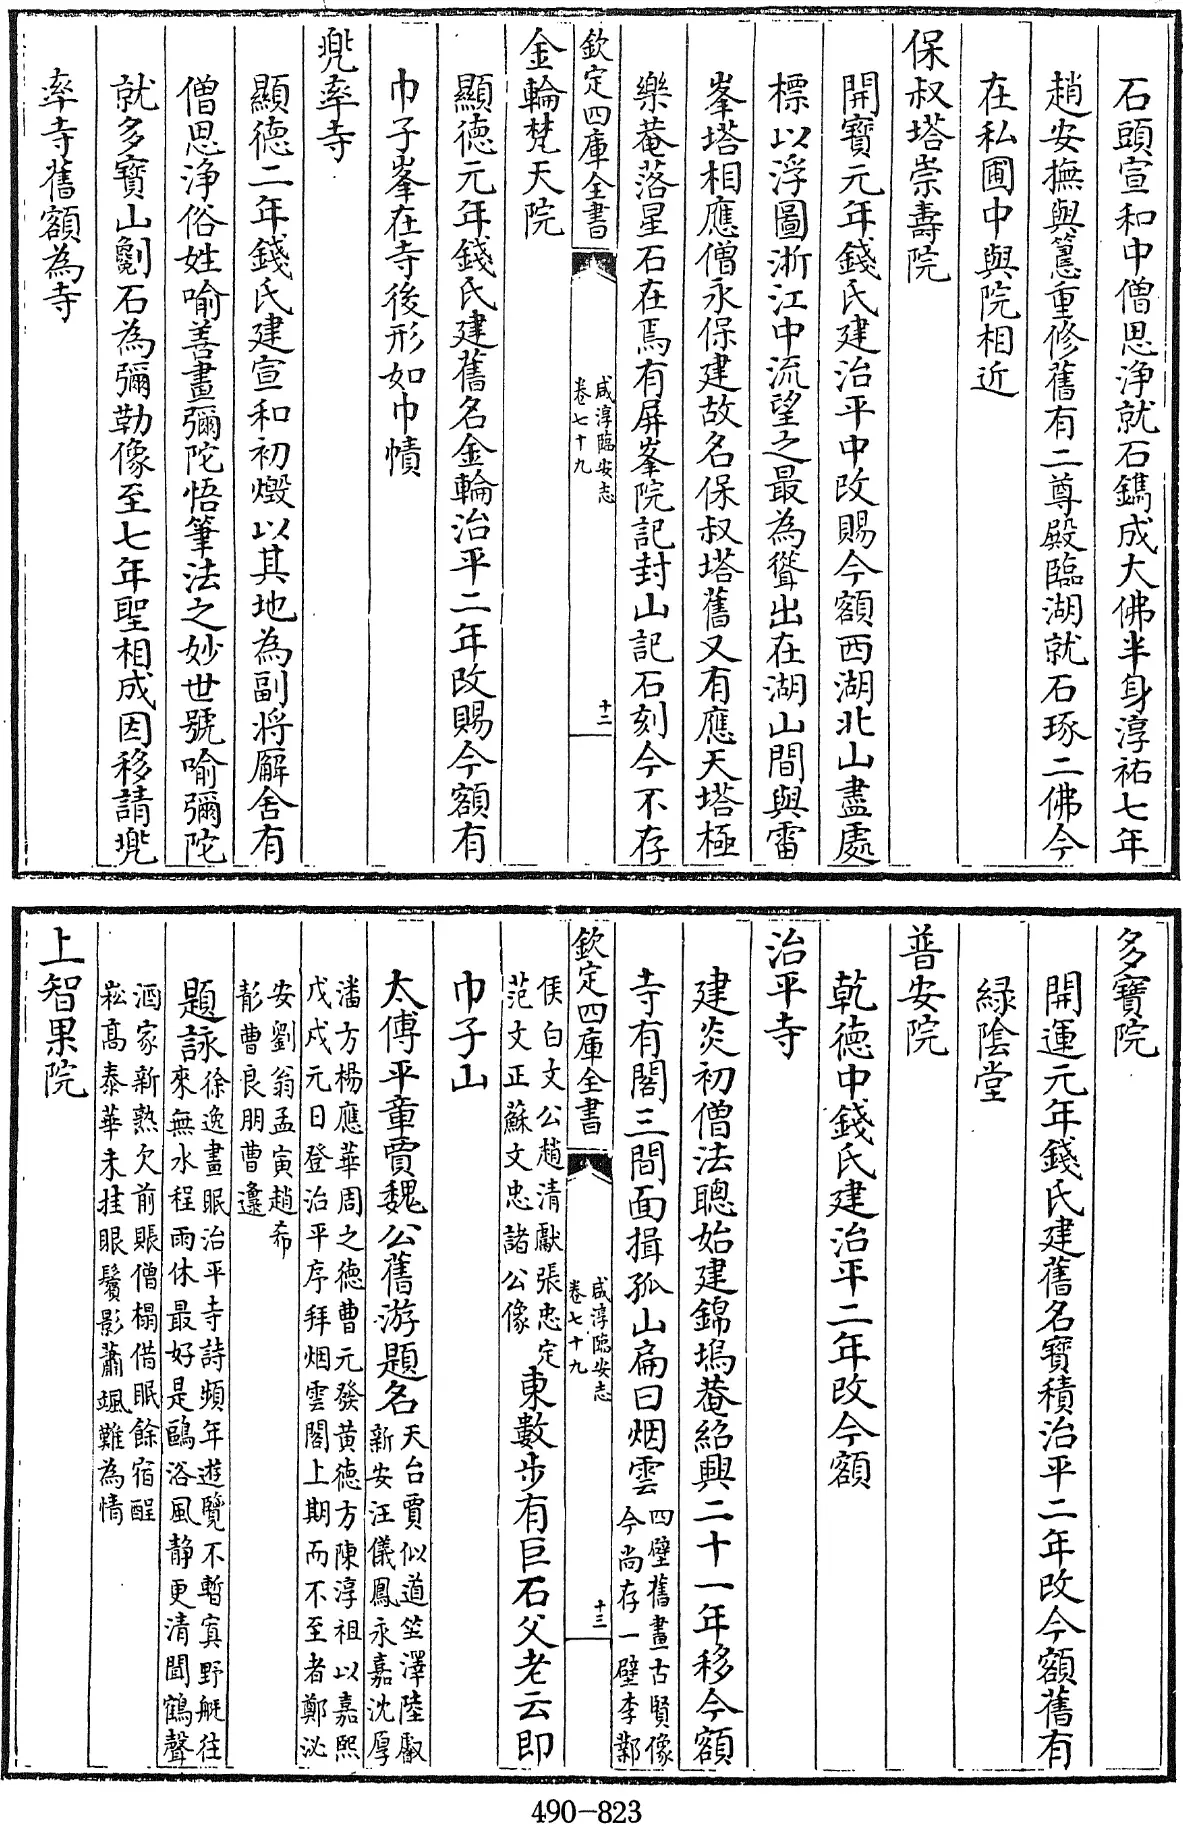 石頭宣和中僧思浄就石鐫成大佛半身淳祐七年
趙安撫與𥲅重修舊有二尊殿臨湖就石琢二佛今
在私圃中與院相近
保叔塔崇壽院
開寶元年錢氏建治平中改賜今額西湖北山盡處
標以浮圖浙江中流望之最為聳出在湖山間與雷
峯塔相應僧永保建故名保叔塔舊又有應天塔極
樂菴落星石在焉有屏峯院記封山記石刻今不存
欽定四庫全書
咸淳臨安志
卷七十九
十二
金輪梵天院
顯德元年錢氏建舊名金輪治平二年改賜今額有
巾子峯在寺後形如巾幘
兠率寺
顯德二年錢氏建宣和初燬以其地為副將廨舍有
僧思浄俗姓喻善畫彌陀悟筆法之妙世號喻彌陀
就多寶山劖石為彌勒像至七年聖相成因移請兠
率寺舊額為寺
多寶院
開運元年錢氏建舊名寶積治平二年改今額舊有
緑陰堂
普安院
乾德中錢氏建治平二年改今額
治平寺
建炎初僧法聰始建錦塢菴紹興二十一年移今額
寺有閣三間面揖孤山扁曰烟雲四壁舊畫古賢像
今尚存一壁李鄴
欽定四庫全書
咸淳臨安志
卷七十九
十三
侯白文公趙清獻張忠定
范文正蘇文忠諸公像
東數步有巨石父老云即
巾子山
太傅平章賈魏公舊游題名天台賈似道笠澤陸叡
新安汪儀鳳永嘉沈厚
潘方楊應華周之德曹元發黄德方陳淳祖以嘉熙
戊戌元日登治平序拜烟雲閣上期而不至者鄭泌
安劉翁孟寅趙希
彭曹良朋曹邍
題詠徐逸晝眠治平寺詩頻年遊覽不暫寘野艇往
來無水程雨休最好是鷗浴風静更清聞鶴聲
酒家新熟欠前賬僧榻借眠餘宿酲
崧高泰華未挂眼鬢影蕭颯難為情
上智果院
490-823